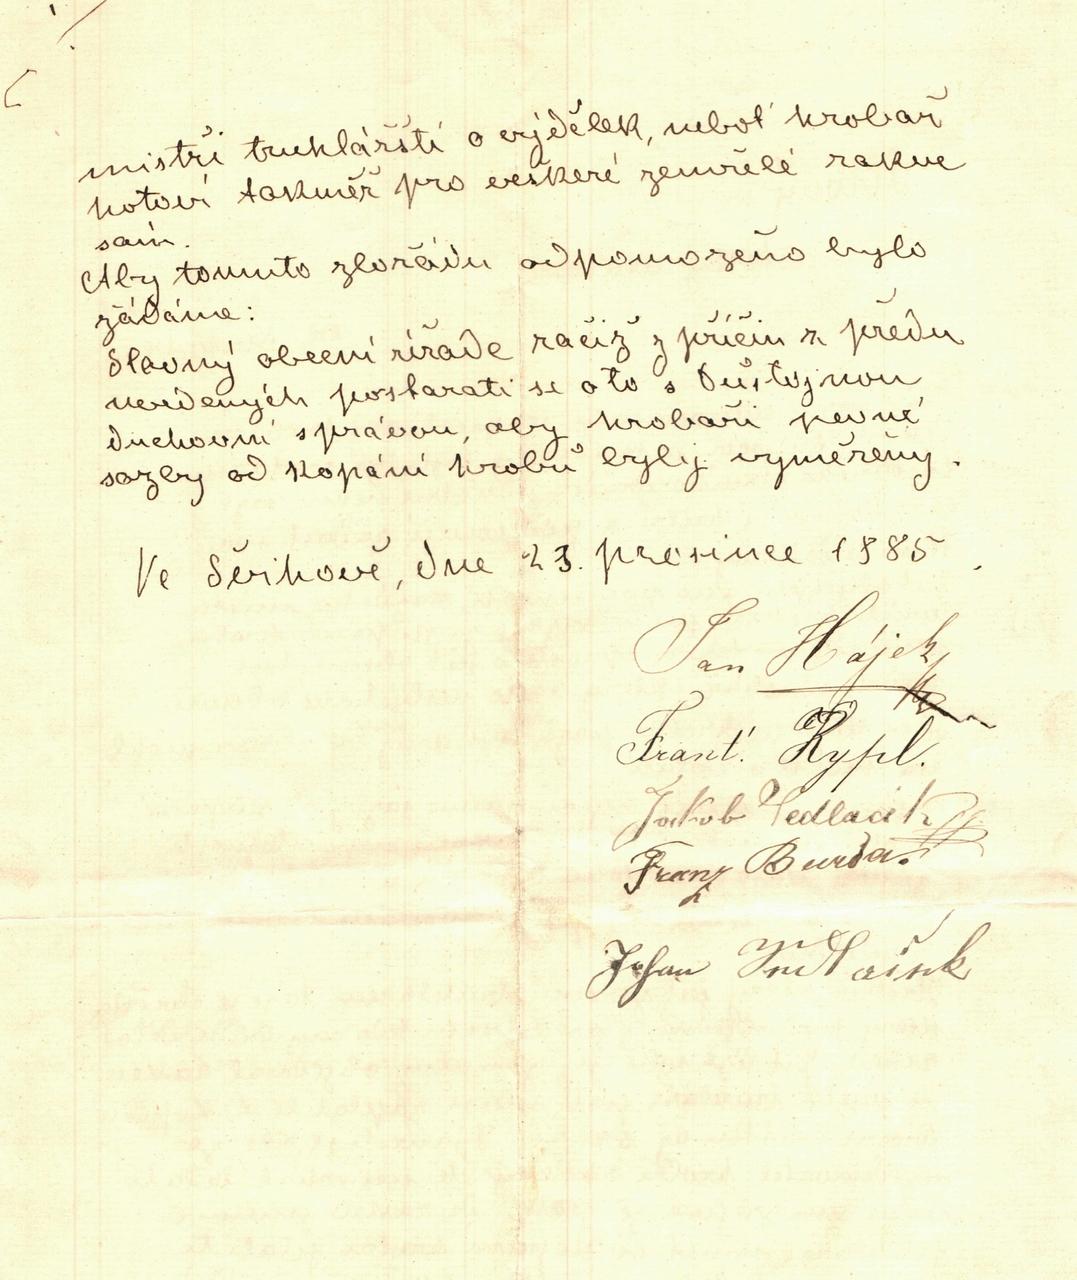 mistři truhlářští o výdělek, neboť hrobař
hotoví takměř pro veškeré zemřelé rakve
sám.
Aby tomuto zlořádu odpomoženo bylo
žádáme:
Slavný obecní úřade račiž z příčin z předu
uvedených postarati se o to s Důstojnou
duchovní správou, aby hrobaři pevné
sazby od kopání hrobů byly vyměřeny.
Ve Sěrikově, dne 23. prosince 1885.
Jan Hájek
Frant. Rypl.
Jakob Sedlacik
Franz Burda.
Johan